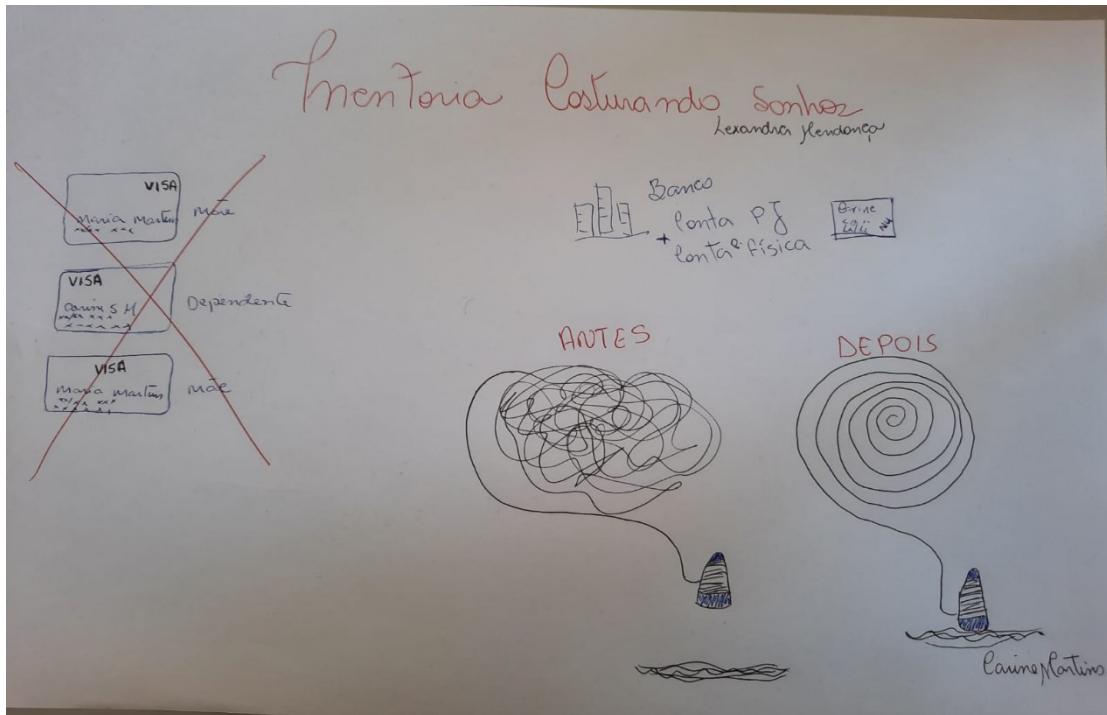 Mentoria Costurando Sonhos
Lexandra Mendonça
VISA
Maria Martins Mãe
VISA
Carine S M Dependente
VISA
Maria Martins Mãe
Banco
Conta PJ
+ Conta Física
ANTES
DEPOIS
Carine Martins